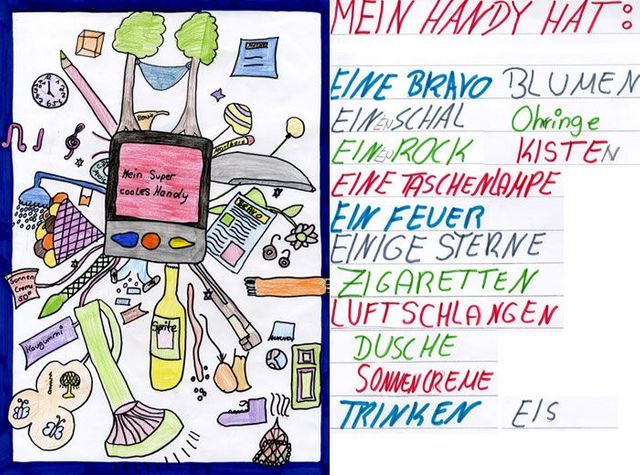 Mein Super
cooles Handy
BRAVO
Sonnen
Creme
50+
Kaugummi
Sprite
MEIN HANDY HAT:
EINE BRAVO BLUMEN
EINEN SCHAL Ohringe
EINEN ROCK KISTEN
EINE TASCHENLAMPE
EIN FEUER
EINIGE STERNE
ZIGARETTEN
LUFTSCHLANGEN
DUSCHE
SONNENCREME
TRINKEN EIS